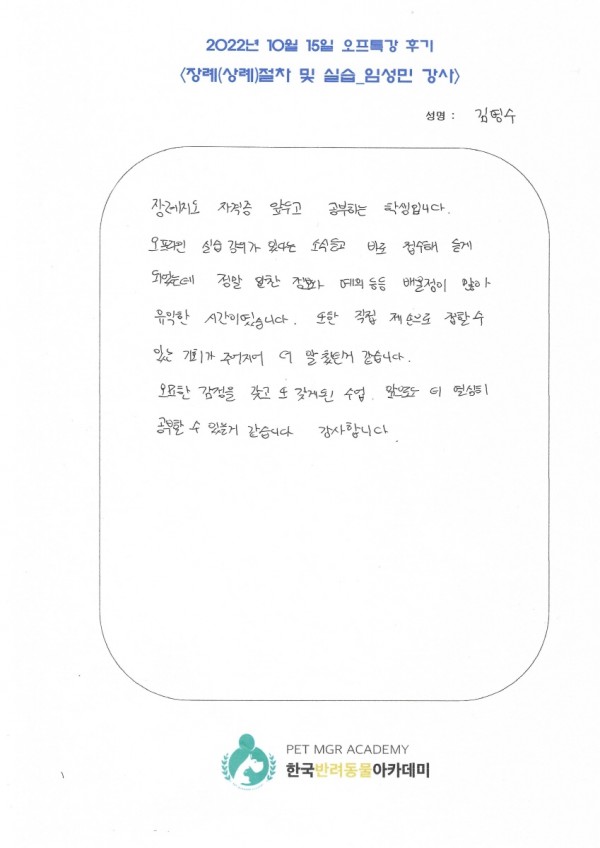 2022년 10월 15일 오프특강 후기
<장례(상례)절차 및 실습_임성민 강사>
성명 : 김명수
장례지도 자격증 앞두고 공부하는 학생입니다.
오프라인 실습 강의가 있다는 소식듣고 바로 접수해 듣게
되었는데 정말 알찬 정보와 예의 등등 배울점이 많아
유익한 시간이였습니다. 또한 직접 제 손으로 접할 수
있는 기회가 주어져 더 알찼던거 같습니다.
오묘한 감정을 갖고 또 갖게된 수업. 앞으로도 더 열심히
공부할 수 있을거 같습니다 감사합니다.
PET MGR ACADEMY
한국반려동물아카데미